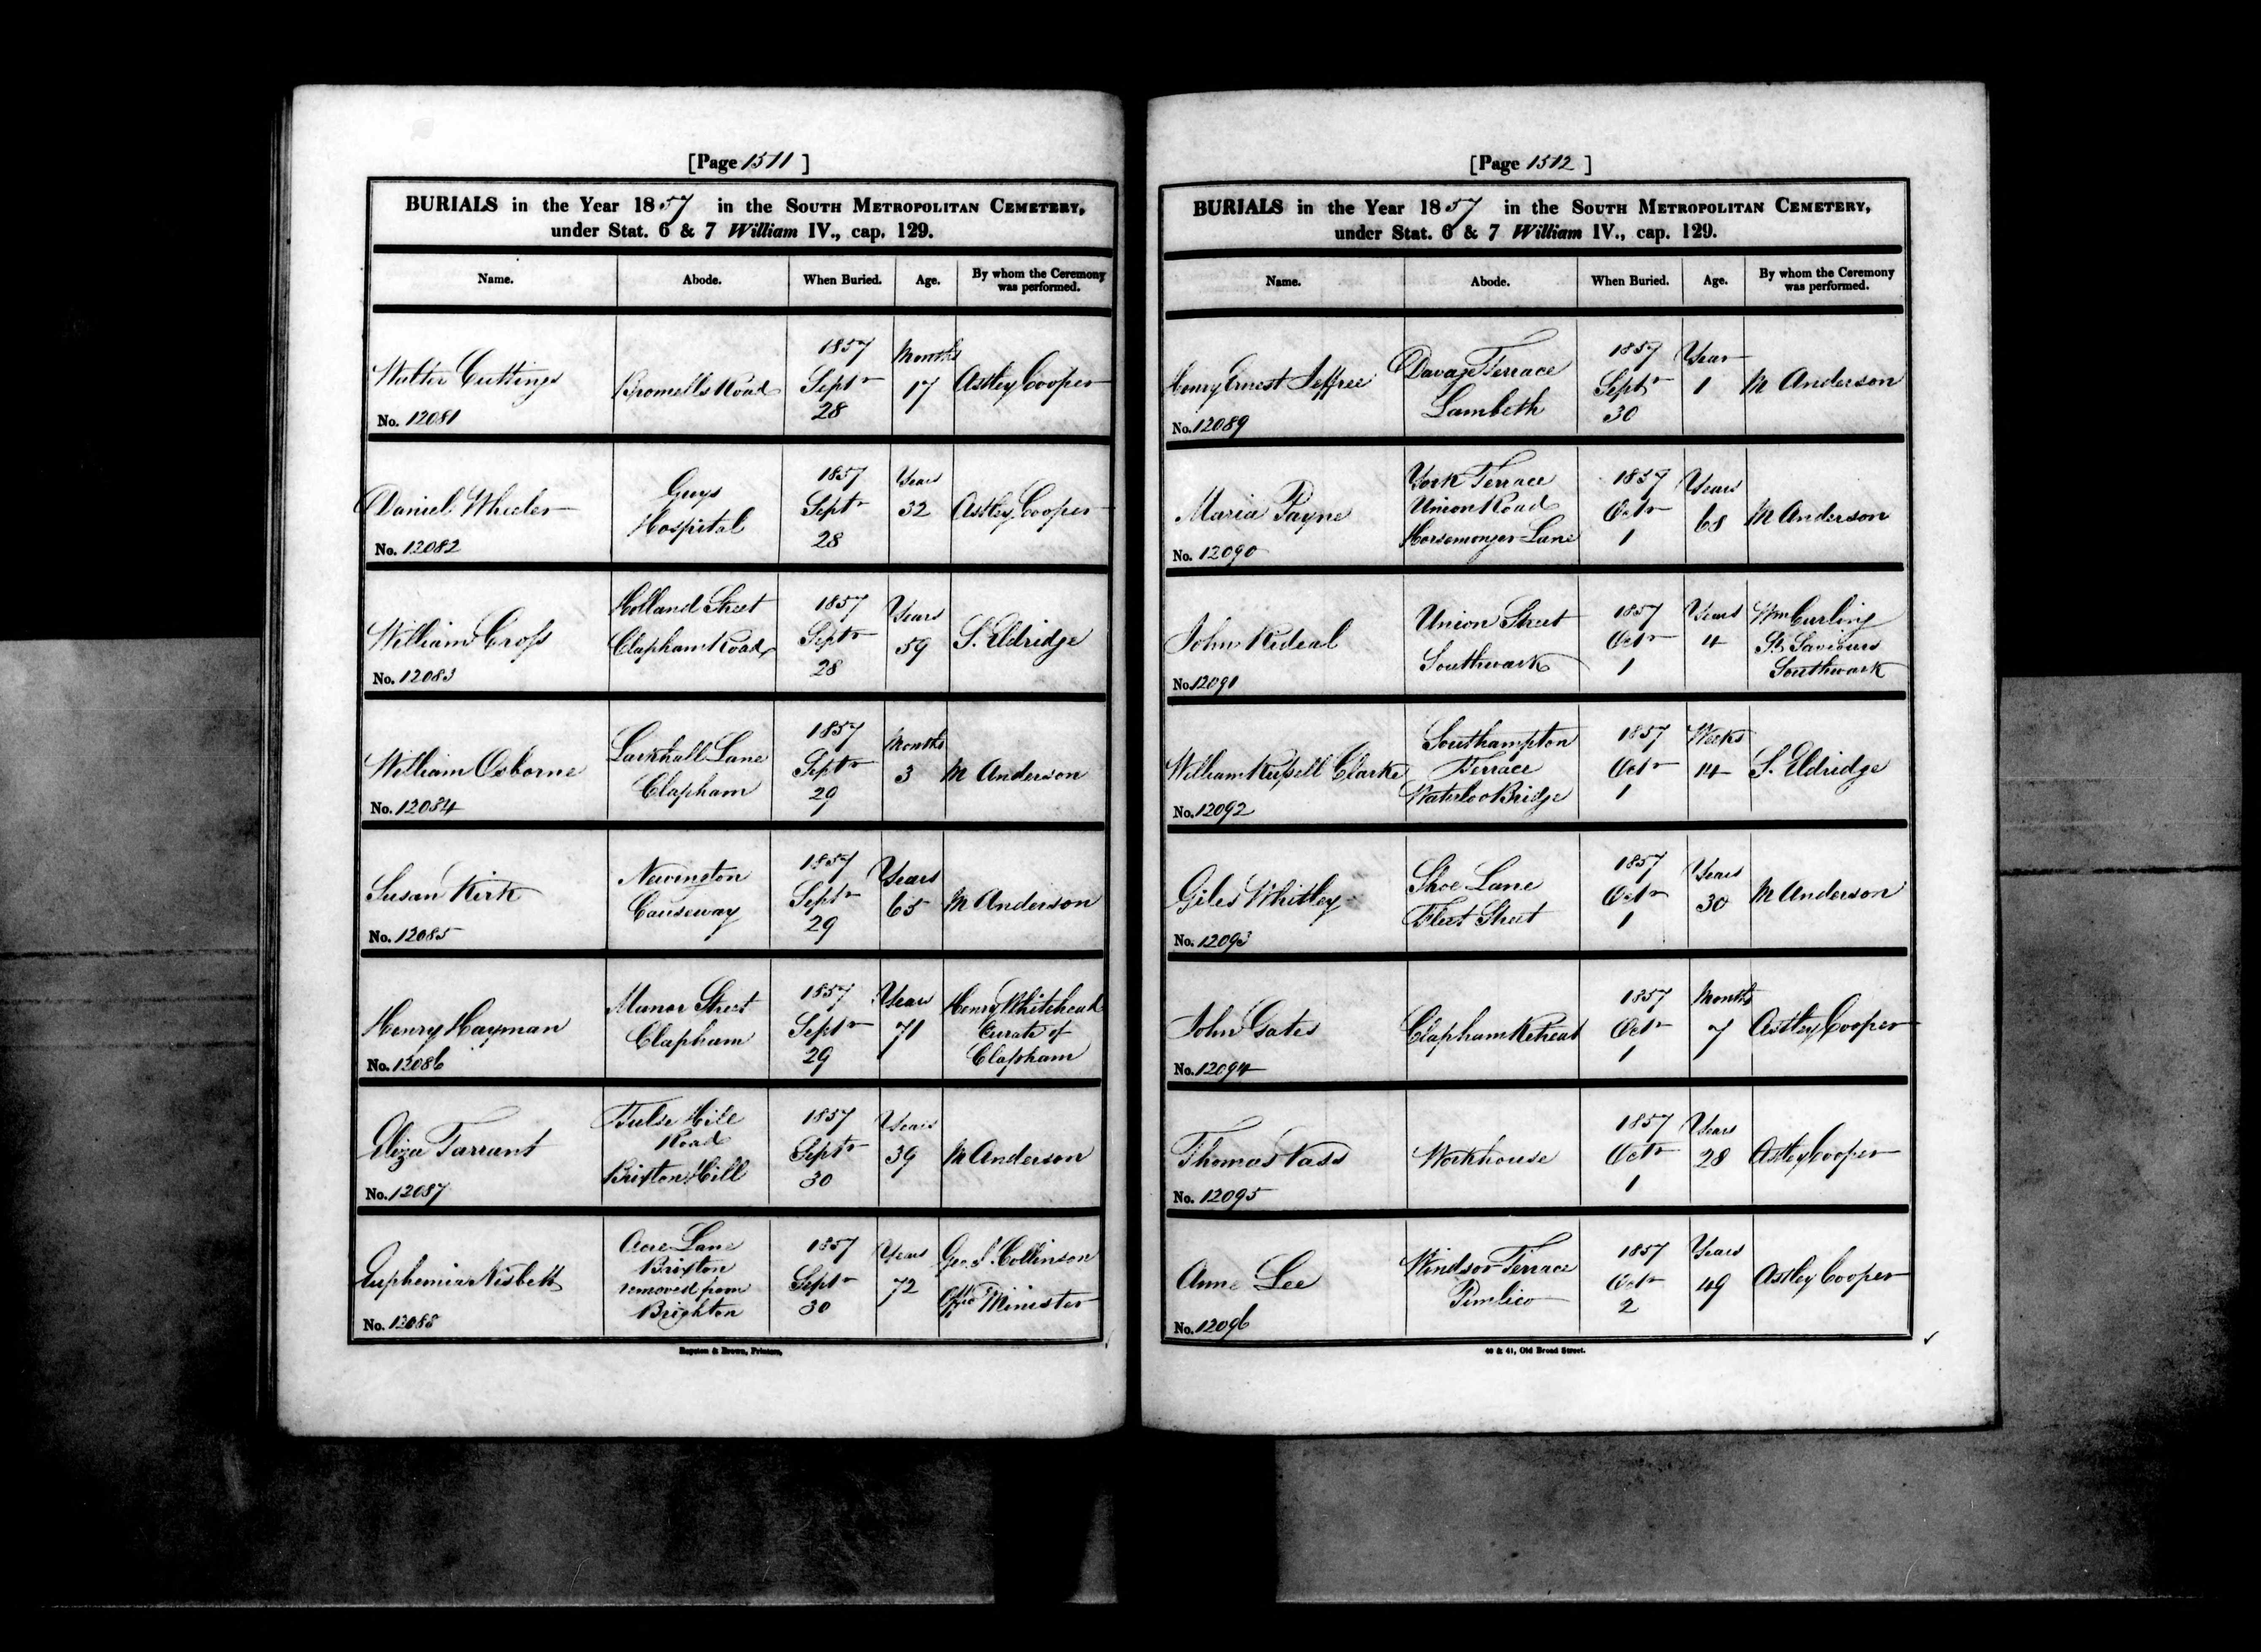 [Page 1511 ]
BURIALS in the Year 1857 in the SOUTH METROPOLITAN CEMETERY,
under Stat. 6 & 7 William IV., cap. 129.
Name. Abode. When Buried. Age. By whom the Ceremony was performed.
Walter Cuttings
No. 12081
Bromells Road
1857
Septr
28
Months
17
Astley Cooper
Daniel Wheeler
No. 12082
Guys
Hospital
1857
Septr
28
Years
32
Astley Cooper
William Cross
No. 12083
Holland Street
Clapham Road
1857
Septr
28
Years
59
S. Eldridge
William Osborne
No. 12084
Larkhall Lane
Clapham
1857
Septr
29
Months
3
M Anderson
Susan Kirk
No. 12085
Newington
Causeway
1857
Septr
29
Years
65
M Anderson
Henry Hayman
No. 12086
Manor Street
Clapham
1857
Septr
29
Years
71
Henry Whitehead
Curate of
Clapham
Eliza Tarrant
No. 12087
Tulse Hill
Road
Brixton Hill
1857
Septr
30
Years
39
M Anderson
Euphemia Nisbett
No. 12088
Acre Lane
Brixton
removed from
Brighton
1857
Septr
30
Years
72
Collinson
Minister
Printers,
[Page 1512 ]
BURIALS in the Year 1857 in the SOUTH METROPOLITAN CEMETERY,
under Stat. 6 & 7 William IV., cap. 129.
Name. Abode. When Buried. Age. By whom the Ceremony was performed.
Henry Ernest Jeffree
No. 12089
Davage Terrace
Lambeth
1857
Septr
30
Year
1
M Anderson
Maria Payne
No. 12090
York Terrace
Union Road
Horsemonger Lane
1857
Octr
1
Years
68
M Anderson
John Rideal
No. 12091
Union Street
Southwark
1857
Octr
1
Years
4
Wm Curling
St Saviours
Southwark
William Russell Clarke
No. 12092
Southampton
Terrace
Waterloo Bridge
1857
Octr
1
Weeks
14
S. Eldridge
Giles Whitley
No. 12093
Shoe Lane
Fleet Street
1857
Octr
1
Years
30
M Anderson
John Gates
No. 12094
Clapham Retreat
1857
Octr
1
Months
7
Astley Cooper
Thomas Vass
No. 12095
Workhouse
1857
Octr
1
Years
28
Astley Cooper
Anne Lee
No. 12096
Windsor Terrace
Pimlico
1857
Octr
2
Years
49
Astley Cooper
40 & 41, Old Broad Street.